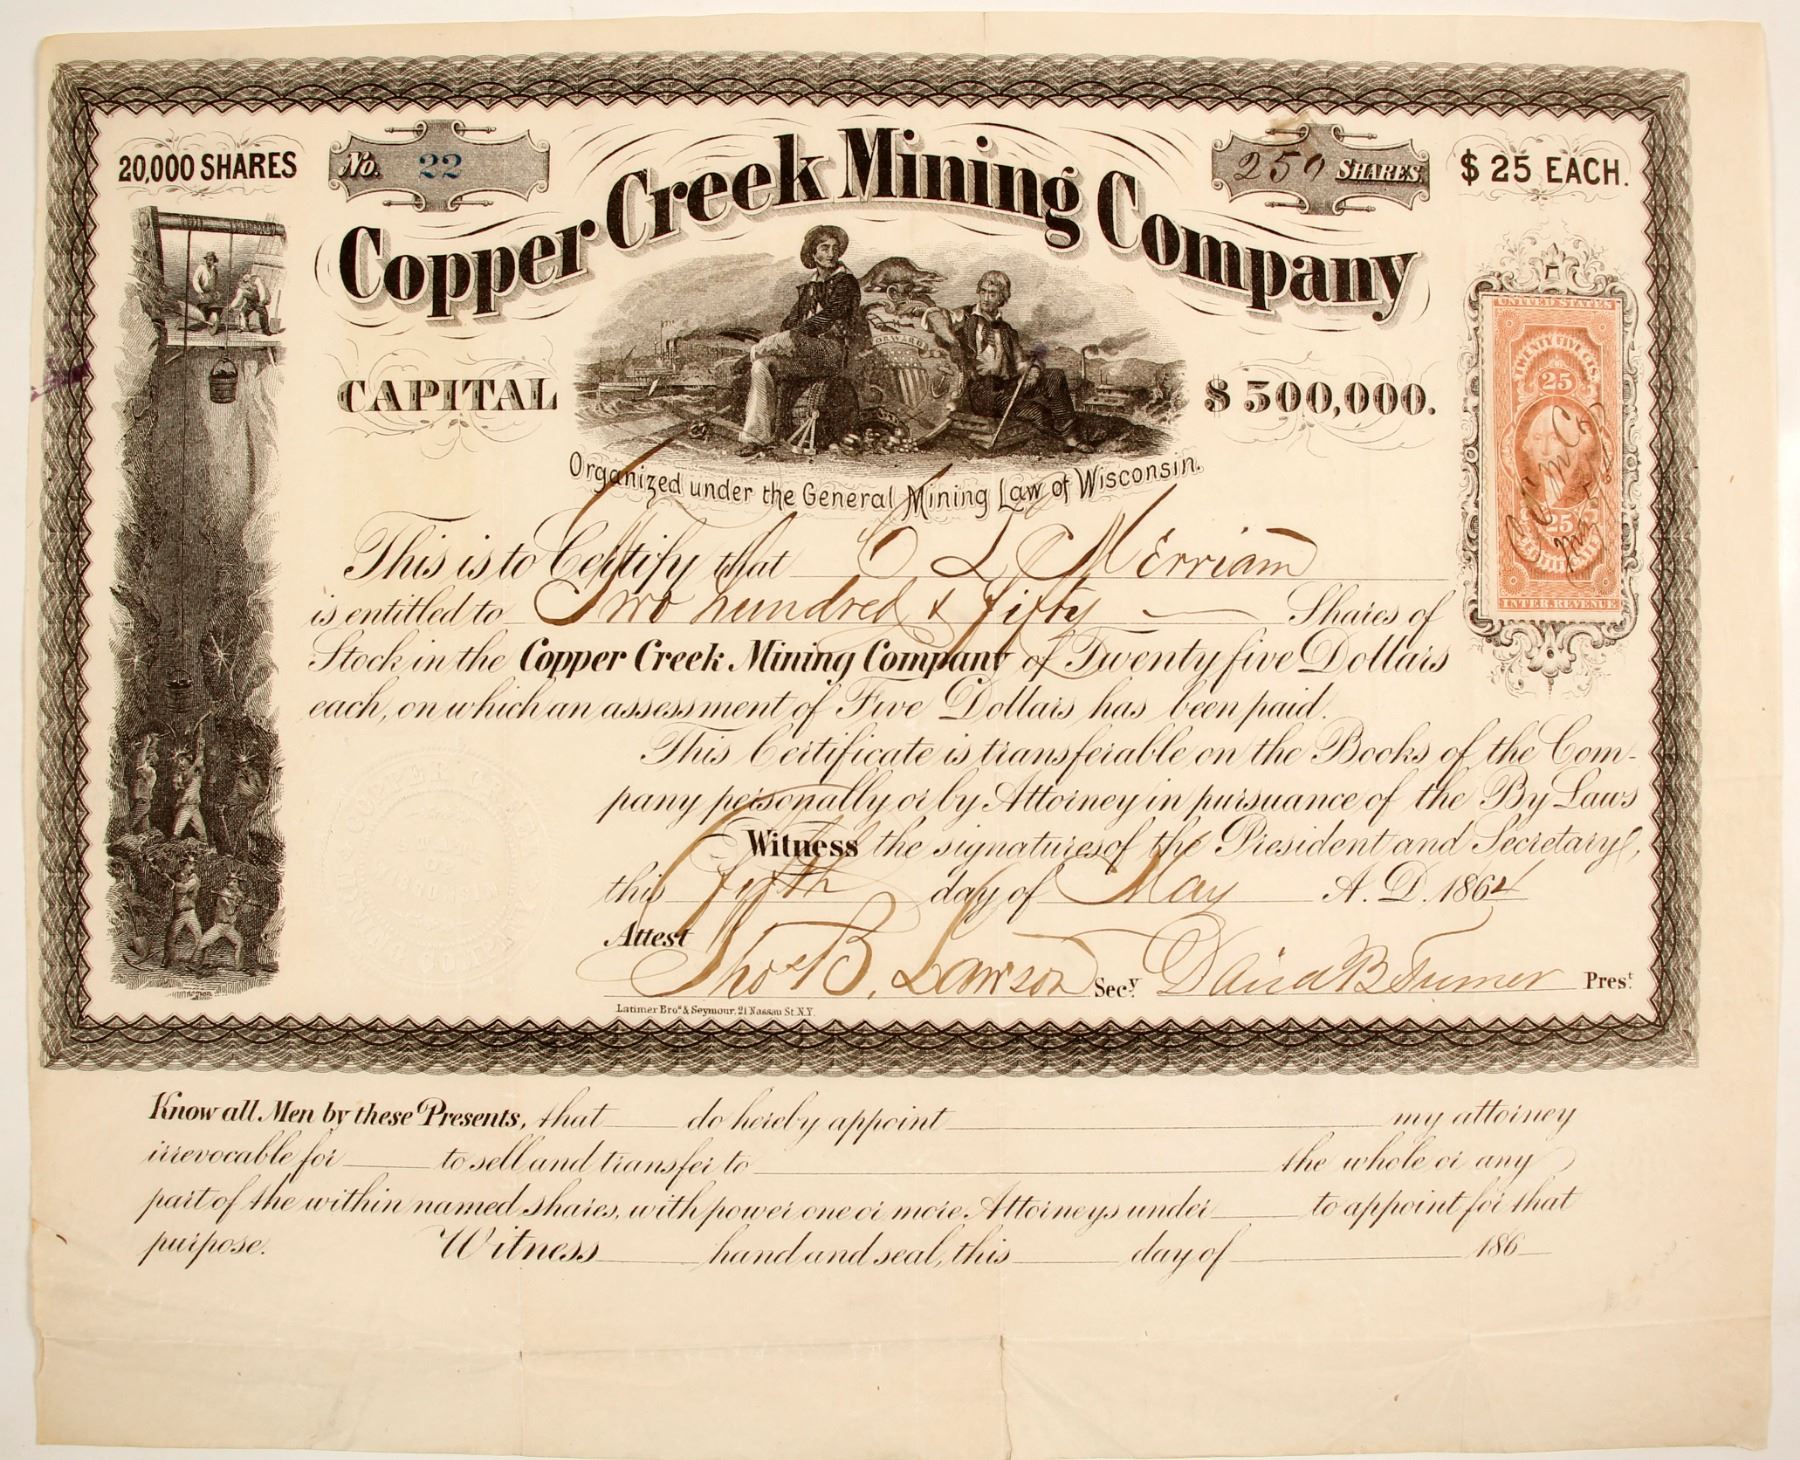 20,000 SHARES
No. 22
250 SHARES
$ 25 EACH.
Copper Creek Mining Company
CAPITAL
$ 500,000.
FORWARD
Organized under the General Mining Law of Wisconsin.
UNITED STATES
TWENTY FIVE CTS.
25
25
INTER. REVENUE
This is to Certify that C L Merriam
is entitled to Two hundred & fifty Shares of
Stock in the Copper Creek Mining Company of Twenty five Dollars
each, on which an assessment of Five Dollars has been paid.
This Certificate is transferable on the Books of the Com-
pany personally or by Attorney in pursuance of the By Laws
Witness the signatures of the President and Secretary,
this fifth day of May A.D. 1864
Attest
Thos B. Lawson Secy. David B Turner Prest
Latimer Bros. & Seymour, 21 Nassau St. N.Y.
Know all Men by these Presents, that do hereby appoint my attorney
irrevocable for to sell and transfer to the whole or any
part of the within named shares, with power one or more Attorneys under to appoint for that
purpose. Witness hand and seal, this day of 186